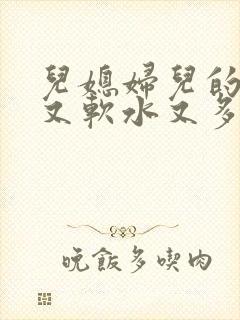 兒媳婦兒的
又軟水又多
晚飯多喫肉